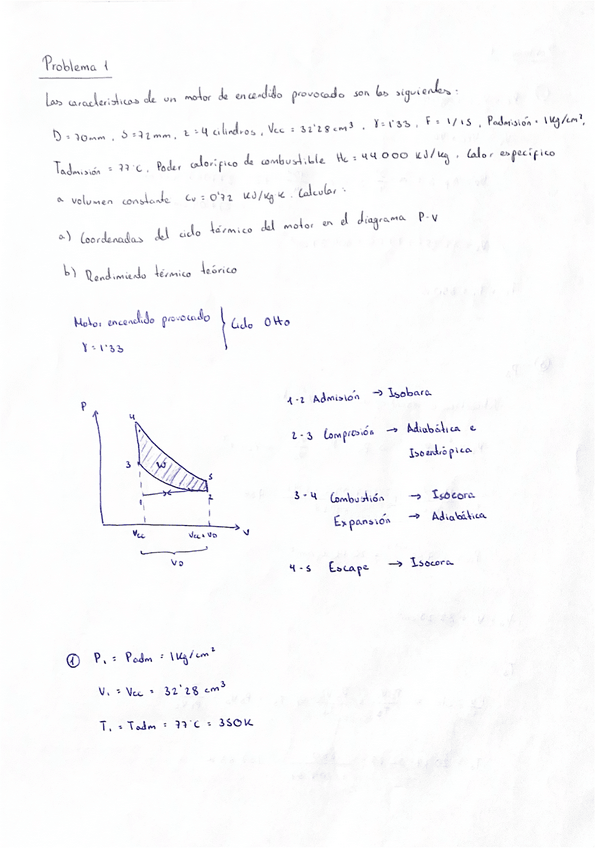 Problema 1
Las características de un motor de encendido provocado son las siguientes:
D = 70mm, S = 72mm, z = 4 cilindros, Vcc = 32'28 cm³, γ = 1'33, F = 1/15, Padmisión = 1Kg/cm²,
Tadmisión = 77°C, Poder calorífico de combustible Hc = 44000 KJ/Kg. Calor específico
a volumen constante Cv = 0'72 KJ/Kg K. Calcular:
a) Coordenadas del ciclo térmico del motor en el diagrama P-V
b) Rendimiento térmico teórico
Motor encendido provocado } Ciclo Otto
γ = 1'33
1-2 Admisión → Isobara
2-3 Compresión → Adiabática e
Isoentrópica
3-4 Combustión → Isócora
Expansión → Adiabática
4-5 Escape → Isocora
P
4
3
W
5
1
2
Vcc
Vcc + VD
V
VD
① P₁ = Padm = 1Kg/cm²
V₁ = Vcc = 32'28 cm³
T₁ = Tadm = 77°C = 350K